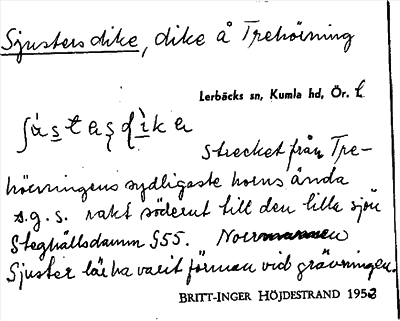 Sjusters dike, dike å Trehörning
Lerbäcks sn, Kumla hd, Ör. l
strecket från Tre-
hörningens sydligaste horns ända
s.g.s. rakt söderut till den lilla sjön
Steghällsdamm S55.
Sjuster lär ha varit förman vid grävningen.
BRITT-INGER HÖJDESTRAND 1953